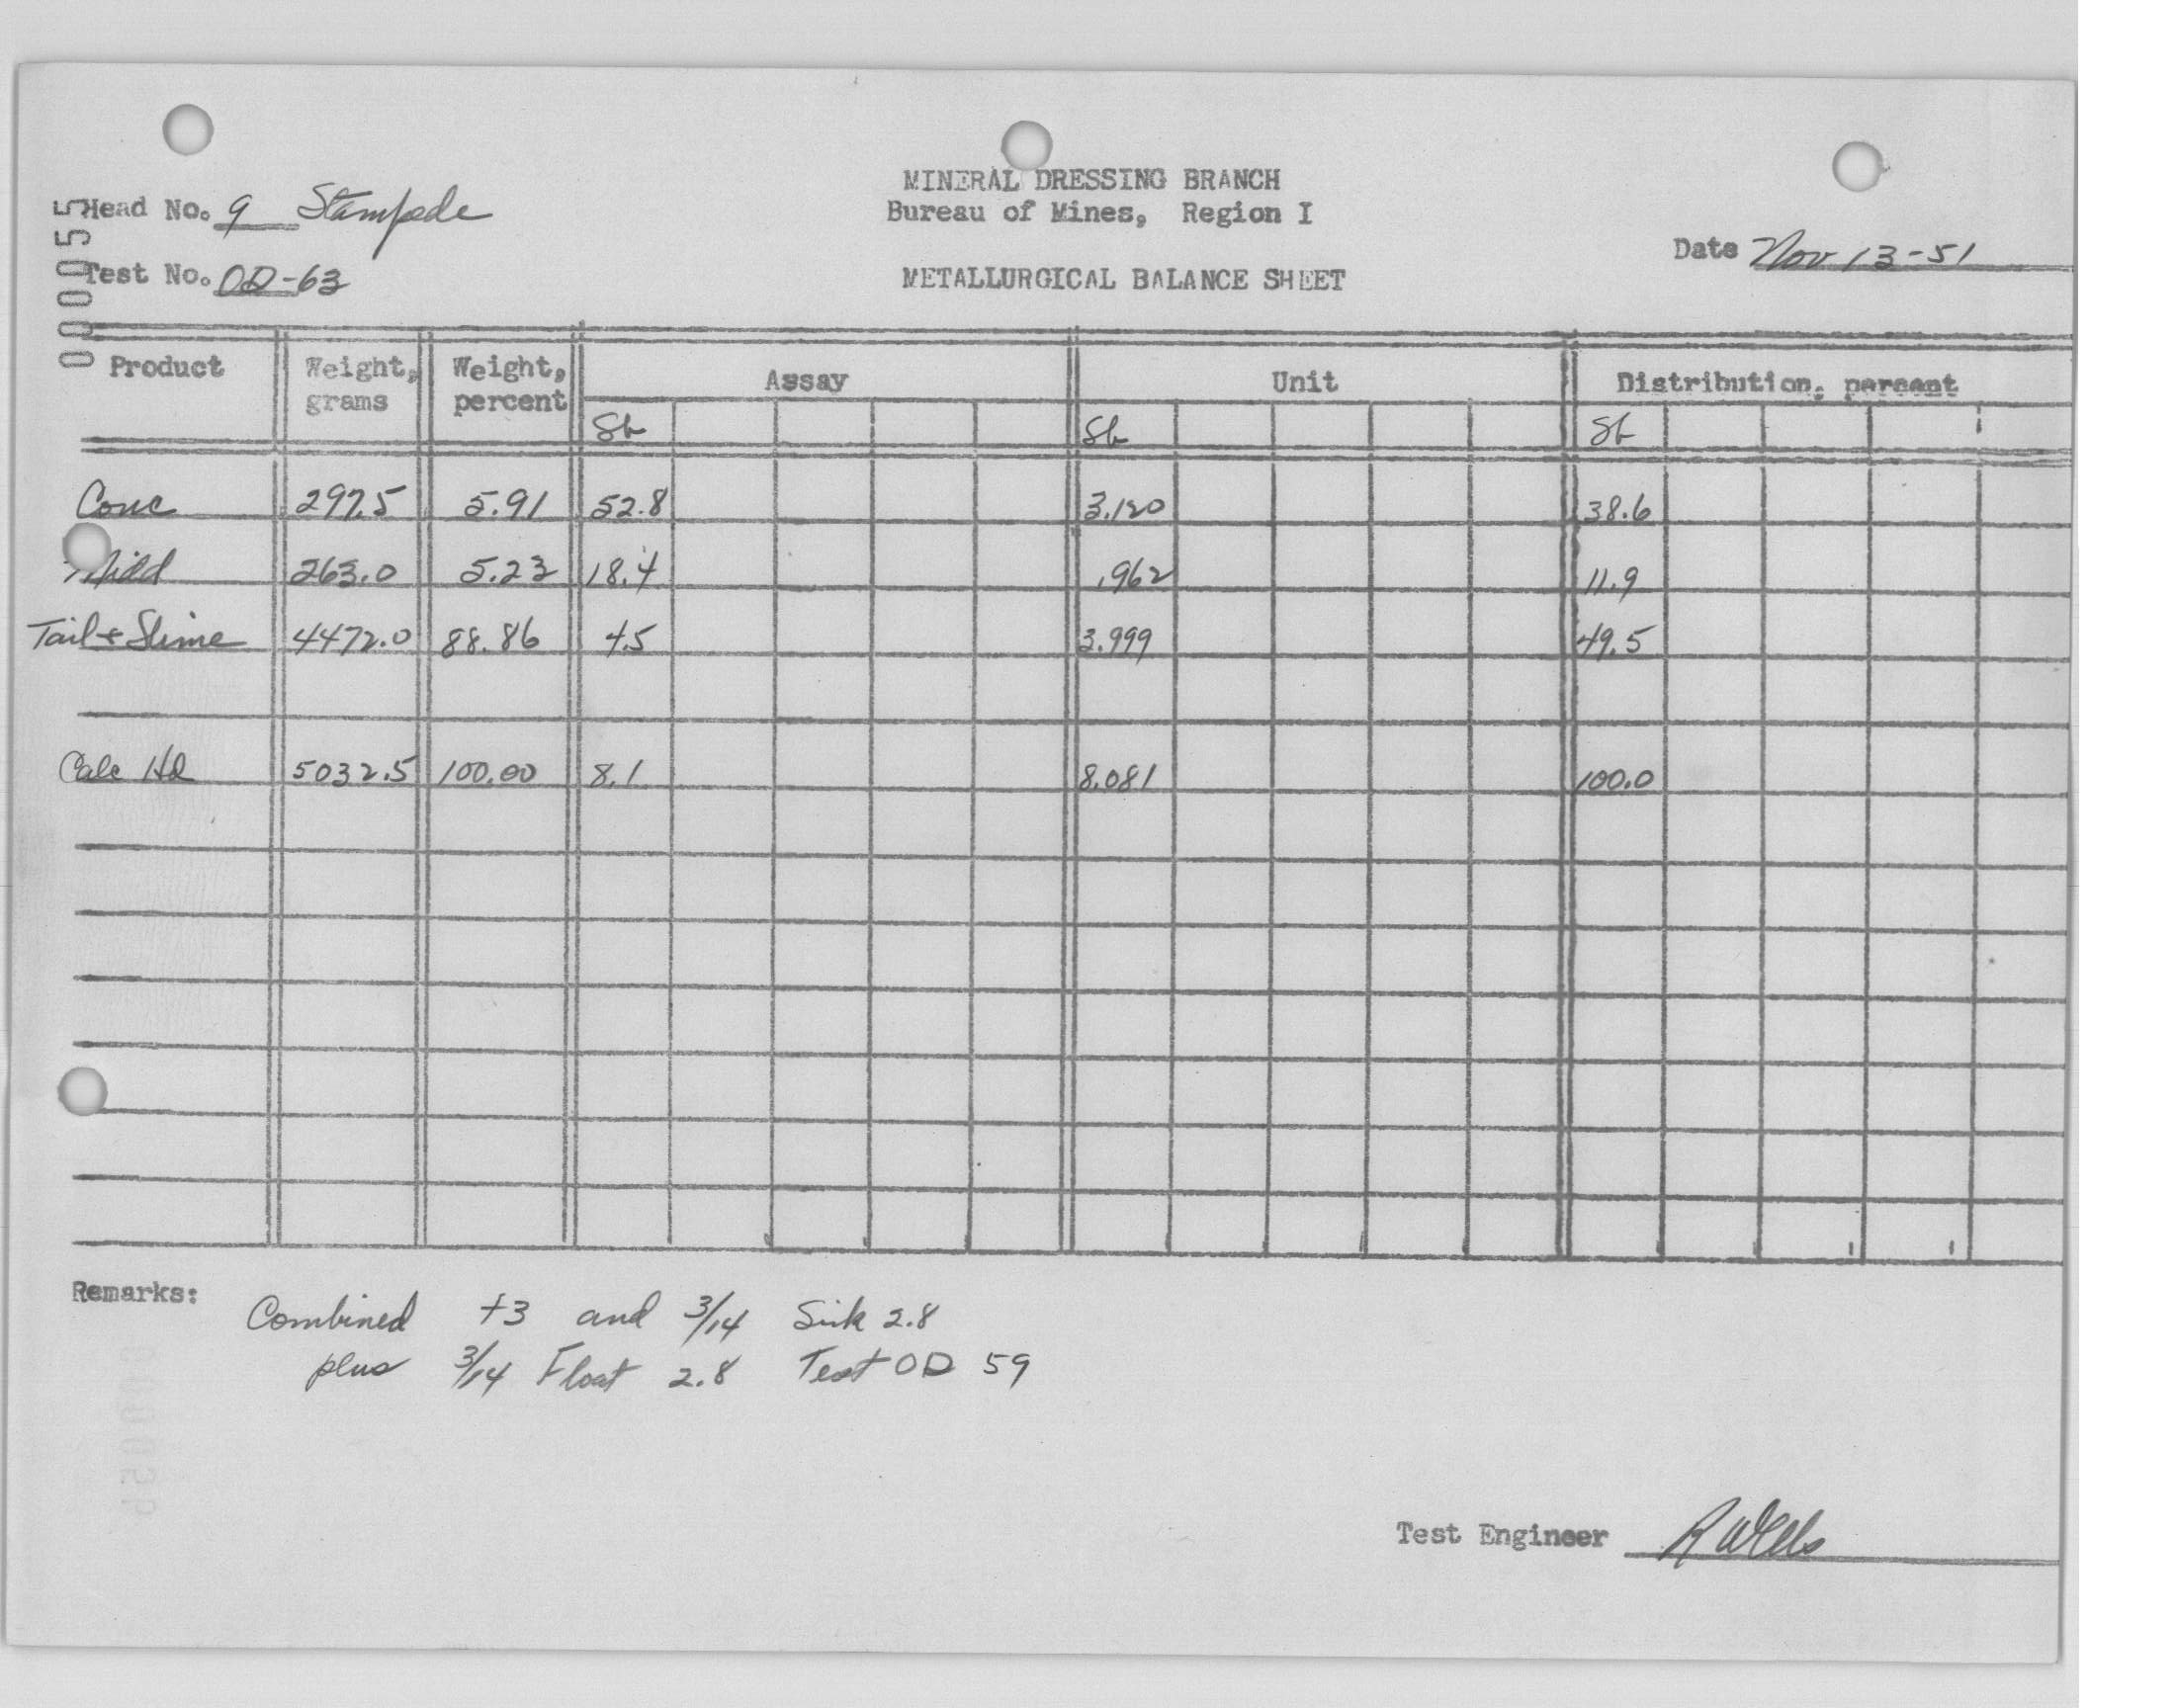 MINERAL DRESSING BRANCH
Head No. 9 Stampede
Bureau of Mines, Region I
Date Nov 13-51
Test No. OD-63
METALLURGICAL BALANCE SHEET
00005
Product Weight, grams Weight, percent Assay Unit Distribution, percent
Sb Sb Sb
Conc 297.5 5.91 52.8 3.120 38.6
Midd 263.0 5.23 18.4 .962 11.9
Tail & Slime 4472.0 88.86 4.5 3.999 49.5
Calc Hd 5032.5 100.00 8.1 8.081 100.0
Remarks:
Combined +3 and 3/14 Sink 2.8
plus 3/14 Float 2.8 Test OD 59
Test Engineer R Wells